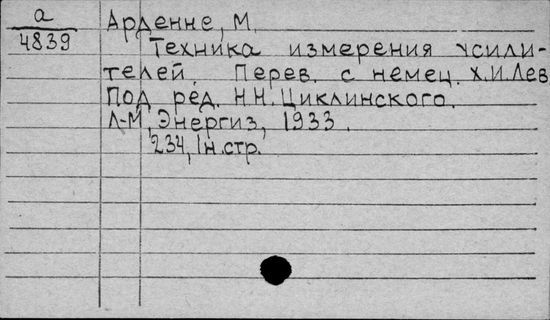 а
4839
Арденне, М.
Техника измерения усили-
телей. Перев. с немец. Х.И.Лев
Под ред. Н.Н. Циклинского.
Л-М, Энергиз, 1933.
234, 1н.стр.